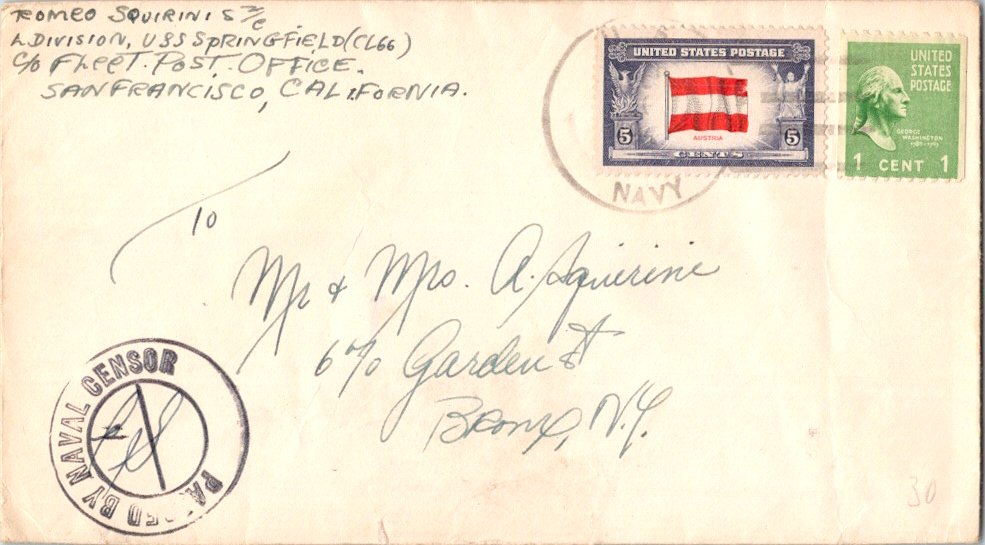 ROMEO SQUIRINI S 2/c
L DIVISION, USS SPRINGFIELD (CL66)
C/O FLEET. POST. OFFICE.
SANFRANCISCO, CALIFORNIA.
UNITED STATES POSTAGE
5 5
AUSTRIA
CENTS
UNITED
STATES
POSTAGE
GEORGE
WASHINGTON
1789-1797
1 CENT 1
NAVY
To
Mr & Mrs. A. Squirine
Garden St
Bronx, N.Y.
PASSED BY NAVAL CENSOR
30